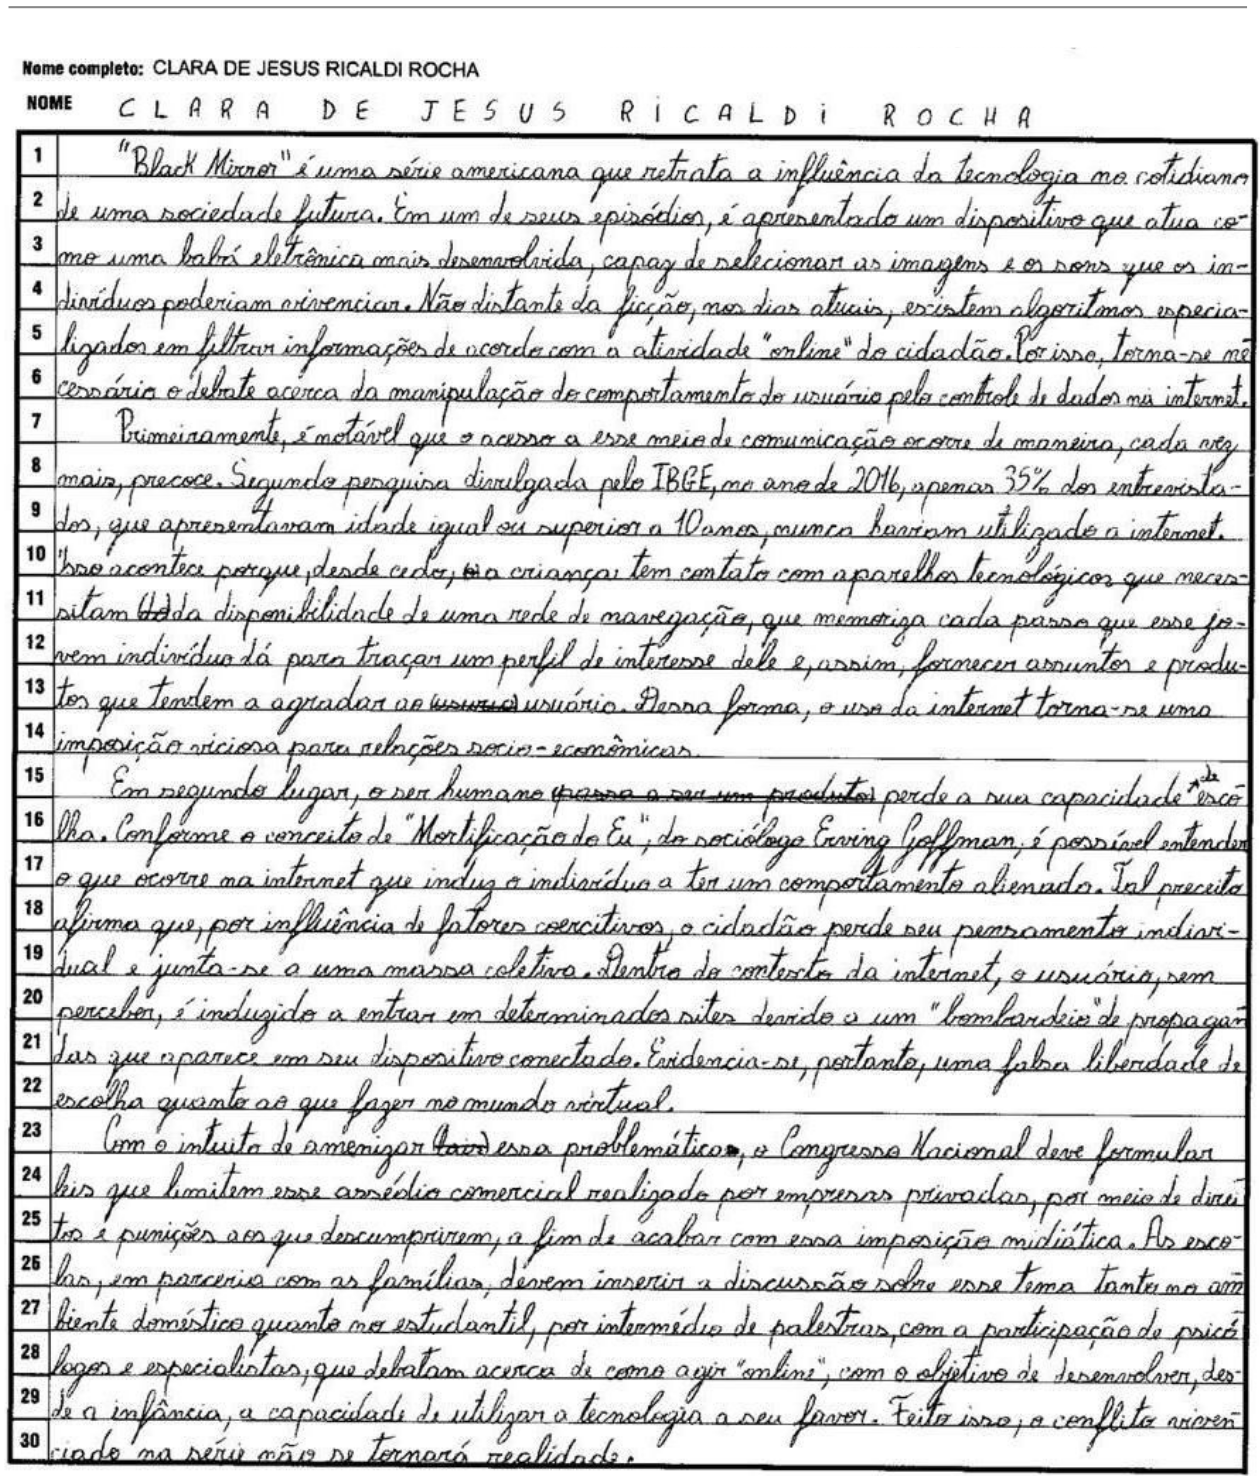 Nome completo: CLARA DE JESUS RICALDI ROCHA
NOME CLARA DE JESUS RICALDI ROCHA
1 "Black Mirror" é uma série americana que retrata a influência da tecnologia no cotidiano
2 de uma sociedade futura. Em um de seus episódios, é apresentado um dispositivo que atua co-
3 mo uma babá eletrônica mais desenvolvida, capaz de selecionar as imagens e os sons que os in-
4 divíduos poderiam vivenciar. Não distante da ficção, nos dias atuais, existem algoritmos especia-
5 lizados em filtrar informações de acordo com a atividade "online" do cidadão. Por isso, torna-se ne
6 cessário o debate acerca da manipulação do comportamento do usuário pelo controle de dados na internet.
7 Primeiramente, é notável que o acesso a esse meio de comunicação ocorre de maneira, cada vez
8 mais, precoce. Segundo pesquisa divulgada pelo IBGE, no ano de 2016, apenas 35% dos entrevista-
9 dos, que apresentavam idade igual ou superior a 10 anos, nunca haviam utilizado a internet.
10 Isso acontece porque, desde cedo, a criança tem contato com aparelhos tecnológicos que neces-
11 sitam da disponibilidade de uma rede de navegação, que memoriza cada passo que esse jo-
12 vem indivíduo dá para traçar um perfil de interesse dele e, assim, fornecer assuntos e produ-
13 tos que tendem a agradar ao usuário. Dessa forma, o uso da internet torna-se uma
14 imposição viciosa para relações socio-econômicas.
15 Em segundo lugar, o ser humano (passa a ser um produto) perde a sua capacidade de esco
16 lha. Conforme o conceito de "Mortificação do Eu", do sociólogo Erving Goffman, é possível entender
17 o que ocorre na internet que induz o indivíduo a ter um comportamento alienado. Tal preceito
18 afirma que, por influência de fatores coercitivos, o cidadão perde seu pensamento indivi-
19 dual e junta-se a uma massa coletiva. Dentro do contexto da internet, o usuário, sem
20 perceber, é induzido a entrar em determinados sites devido a um "bombardeio" de propagan
21 das que aparece em seu dispositivo conectado. Evidencia-se, portanto, uma falsa liberdade de
22 escolha quanto ao que fazer no mundo virtual.
23 Com o intuito de amenizar essa problemática, o Congresso Nacional deve formular
24 leis que limitem esse assédio comercial realizado por empresas privadas, por meio de direi
25 tos e punições aos que descumprirem, a fim de acabar com essa imposição midiática. As esco-
26 las, em parceria com as famílias, devem inserir a discussão sobre esse tema tanto no am
27 biente doméstico quanto no estudantil, por intermédio de palestras, com a participação de psicó
28 logos e especialistas, que debatam acerca de como agir "online", com o objetivo de desenvolver, des-
29 de a infância, a capacidade de utilizar a tecnologia a seu favor. Feito isso, o conflito viven
30 ciado na série não se tornará realidade.